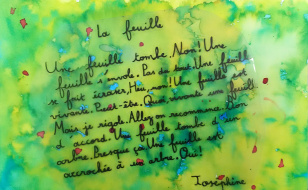 La feuille
Une feuille tombe. Non! Une
feuille s'envole. Pas du tout. Une feuille
se fait écraser. Hé, non! Une feuille est
vivante. Peut-être. Oui, vivante une feuille
Mais je rigole. Allez on recommence. Bon
d'accord. Une feuille tombe d'un
arbre. Presque ça! Une feuille est
accrochée à un arbre. Oui!
Josephine